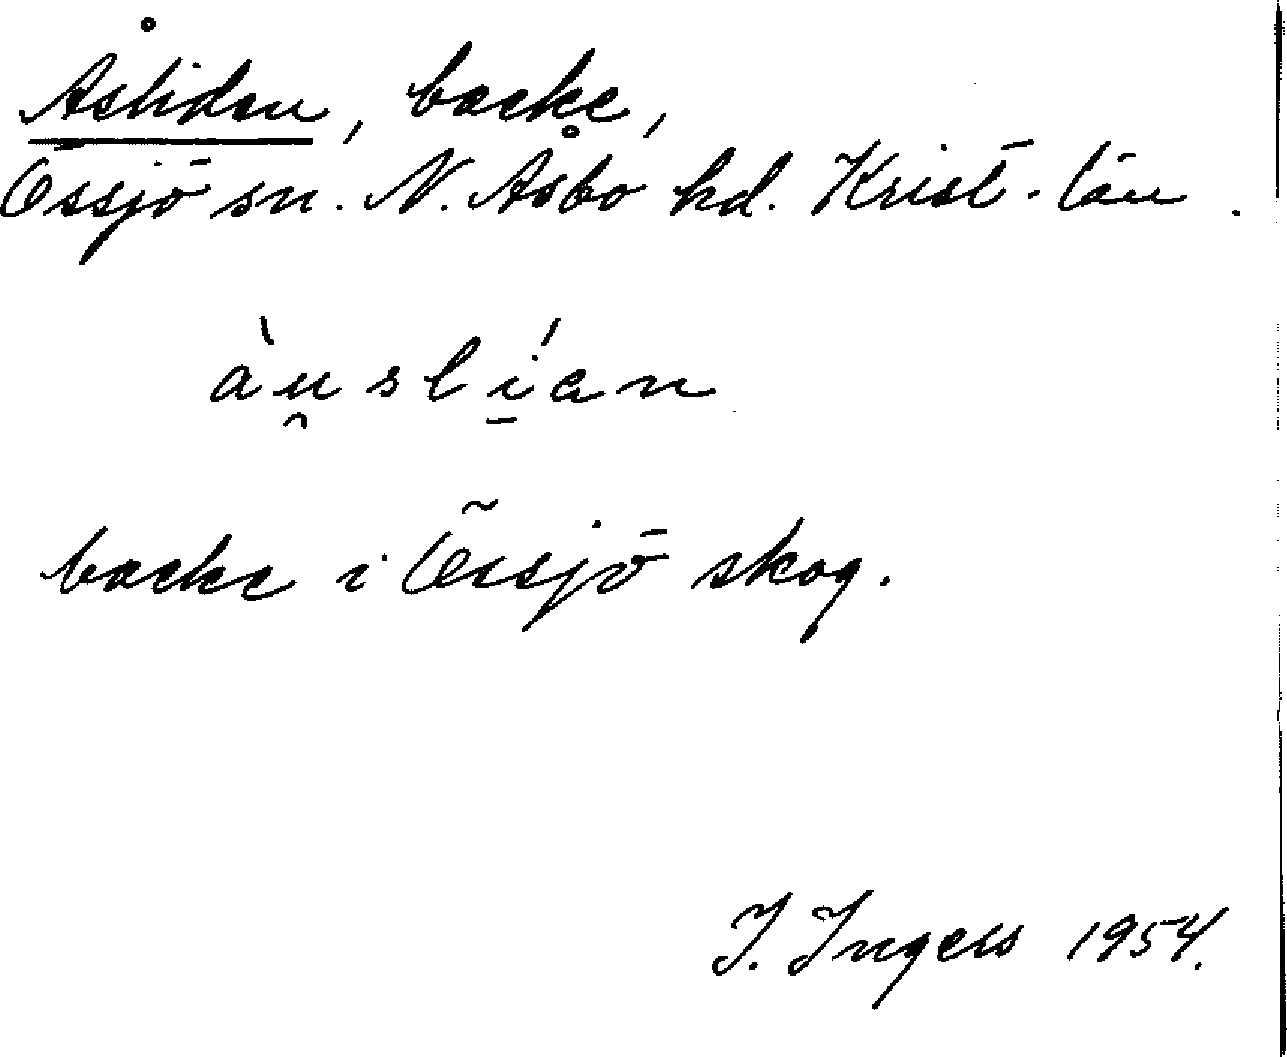 Åsliden, backe,
Össjö sn. N. Åsbo hd. Krist. län.
àu̯slí̠an
backe i Össjö skog.
I. Ingers 1954.